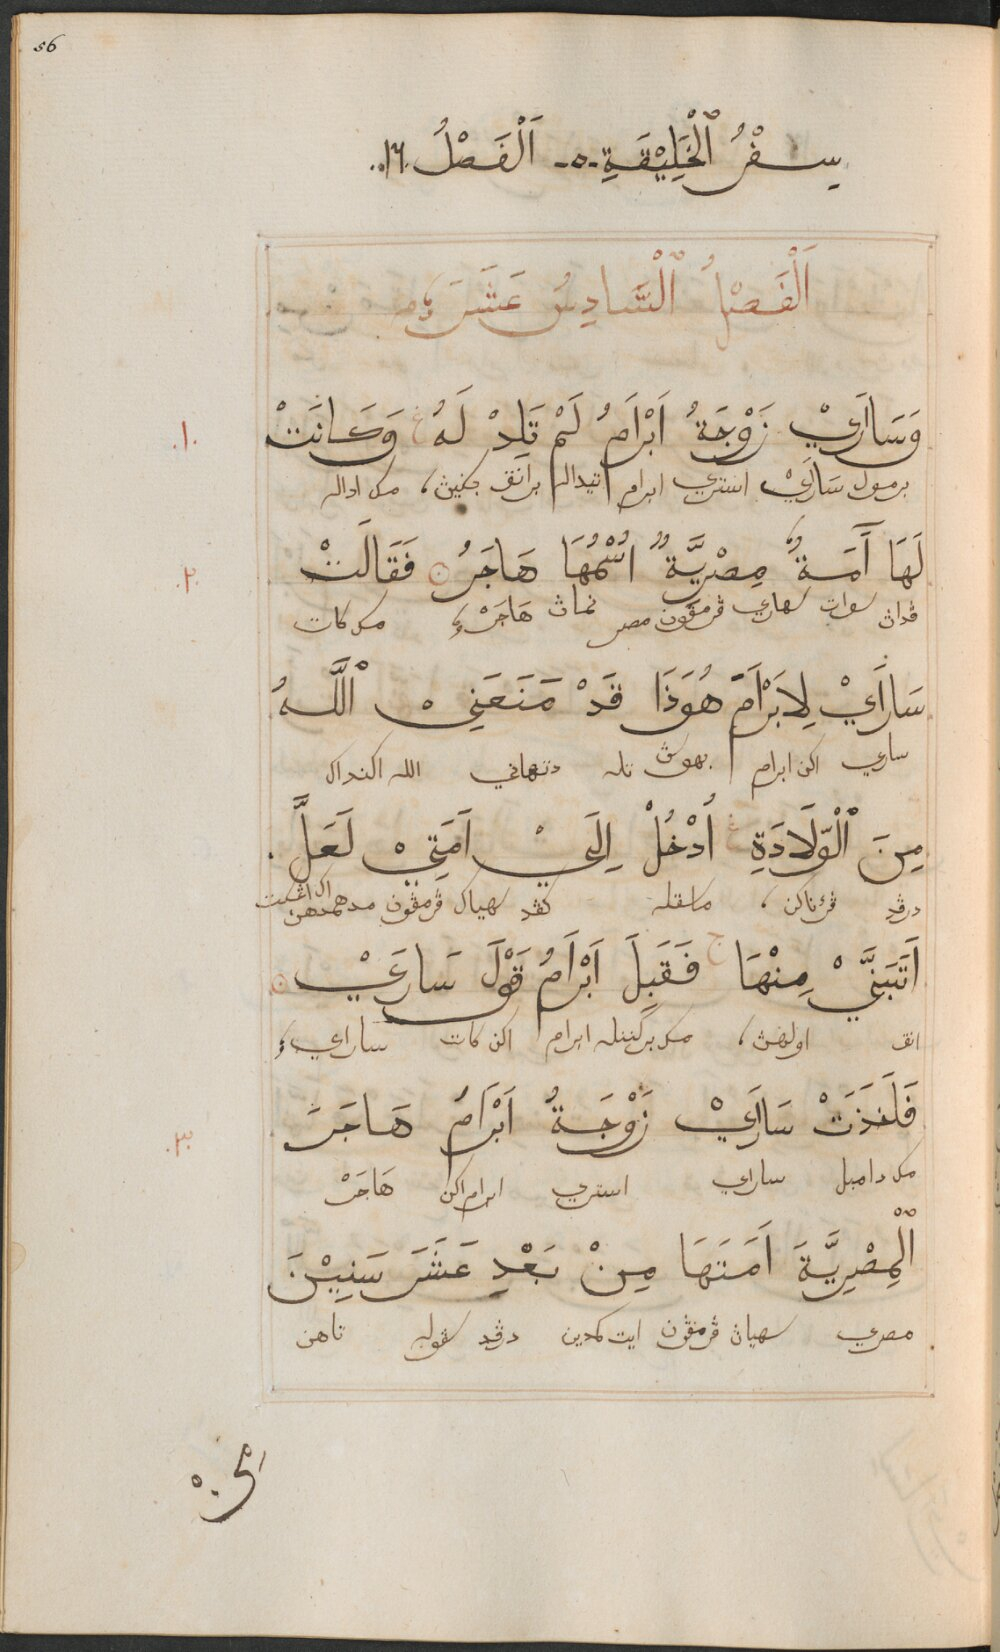 56
سِفْرُ ٱلْخَلِيْقَةِ -٥- اَلْفَصْلُ ١٦
اَلْفَصْلُ ٱلْسَّادِسُ عَشَرَ
١ وَسَارَيْ زَوْجَةُ اَبْرَامُ لَمْ تَلِدْ لَهُ وَكَانَتْ
برمول سَارَيْ استري ابرام تيدله برانق مك ادله
٢ لَهَا اَمَةٌ مِصْرِيَّةٌ اسْمُهَا هَاجَرُ فَقَالَتْ
ڤداڽ سوات سهاي ڤرمڤون مصر نماڽ هَاجَرْ مك كات
سَارَيْ لِابْرَامَ هُوَذَا قَدْ مَنَعَنِيْ ٱللَّهُ
ساري اكن ابرام بهوس تله دتهاني الله اكنداك
مِنَ ٱلْوِلَادَةِ اُدْخُلْ اِلَيْ اَمَتِيْ لَعَلَّ
درڤد ماسقله كڤد سهياك ڤرمڤون
اَتَبَنَّيْ مِنْهَا فَقَبِلَ اَبْرَامُ قَوْلَ سَارَيْ
انق اولهڽ ابرام اكن كات ساراي
٣ فَاَخَذَتْ سَارَيْ زَوْجَةُ اَبْرَامُ هَاجَرَ
مك دامبل ساراي استري ابرام اكن هَاجَرْ
ٱلْمِصْرِيَّةَ اَمَتَهَا مِنْ بَعْدِ عَشَرَ سَنِيْنَ
مصري سهياڽ ڤرمڤون ايت كمدين درڤد سڤوله تاهن